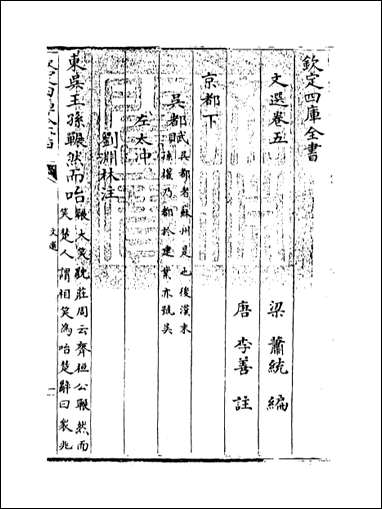 欽定四庫全書
文選卷五
梁 蕭統 編
唐 李善 註
京都下
吳都賦吳都者蘇州是也後漢末
孫權乃都於建業亦號吳
左太沖
劉淵林注
東吳王孫囅然而咍囅大笑貌莊周云齊桓公囅然而
笑楚人謂相笑為咍楚辭曰衆兆
文選